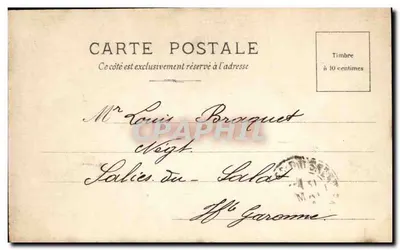 CARTE POSTALE
Ce côté est exclusivement réservé à l'adresse
Timbre
à 10 centimes
Mr Louis Braquet
Négt
Salies-du-Salat
Hte Garonne
CPAPHIL